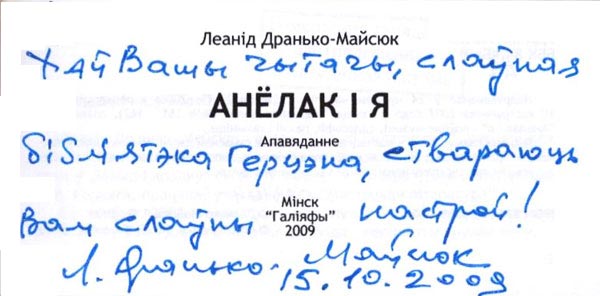 Леанід Дранько-Майсюк
Хай Вашы чытачы, слаўная
АНЁЛАК І Я
Апавяданне
бібліятэка Герцэна, ствараюць
Мінск
"Галіяфы"
Вам слаўны настрой!
2009
Л. Дранько-Майсюк
15.10.2009